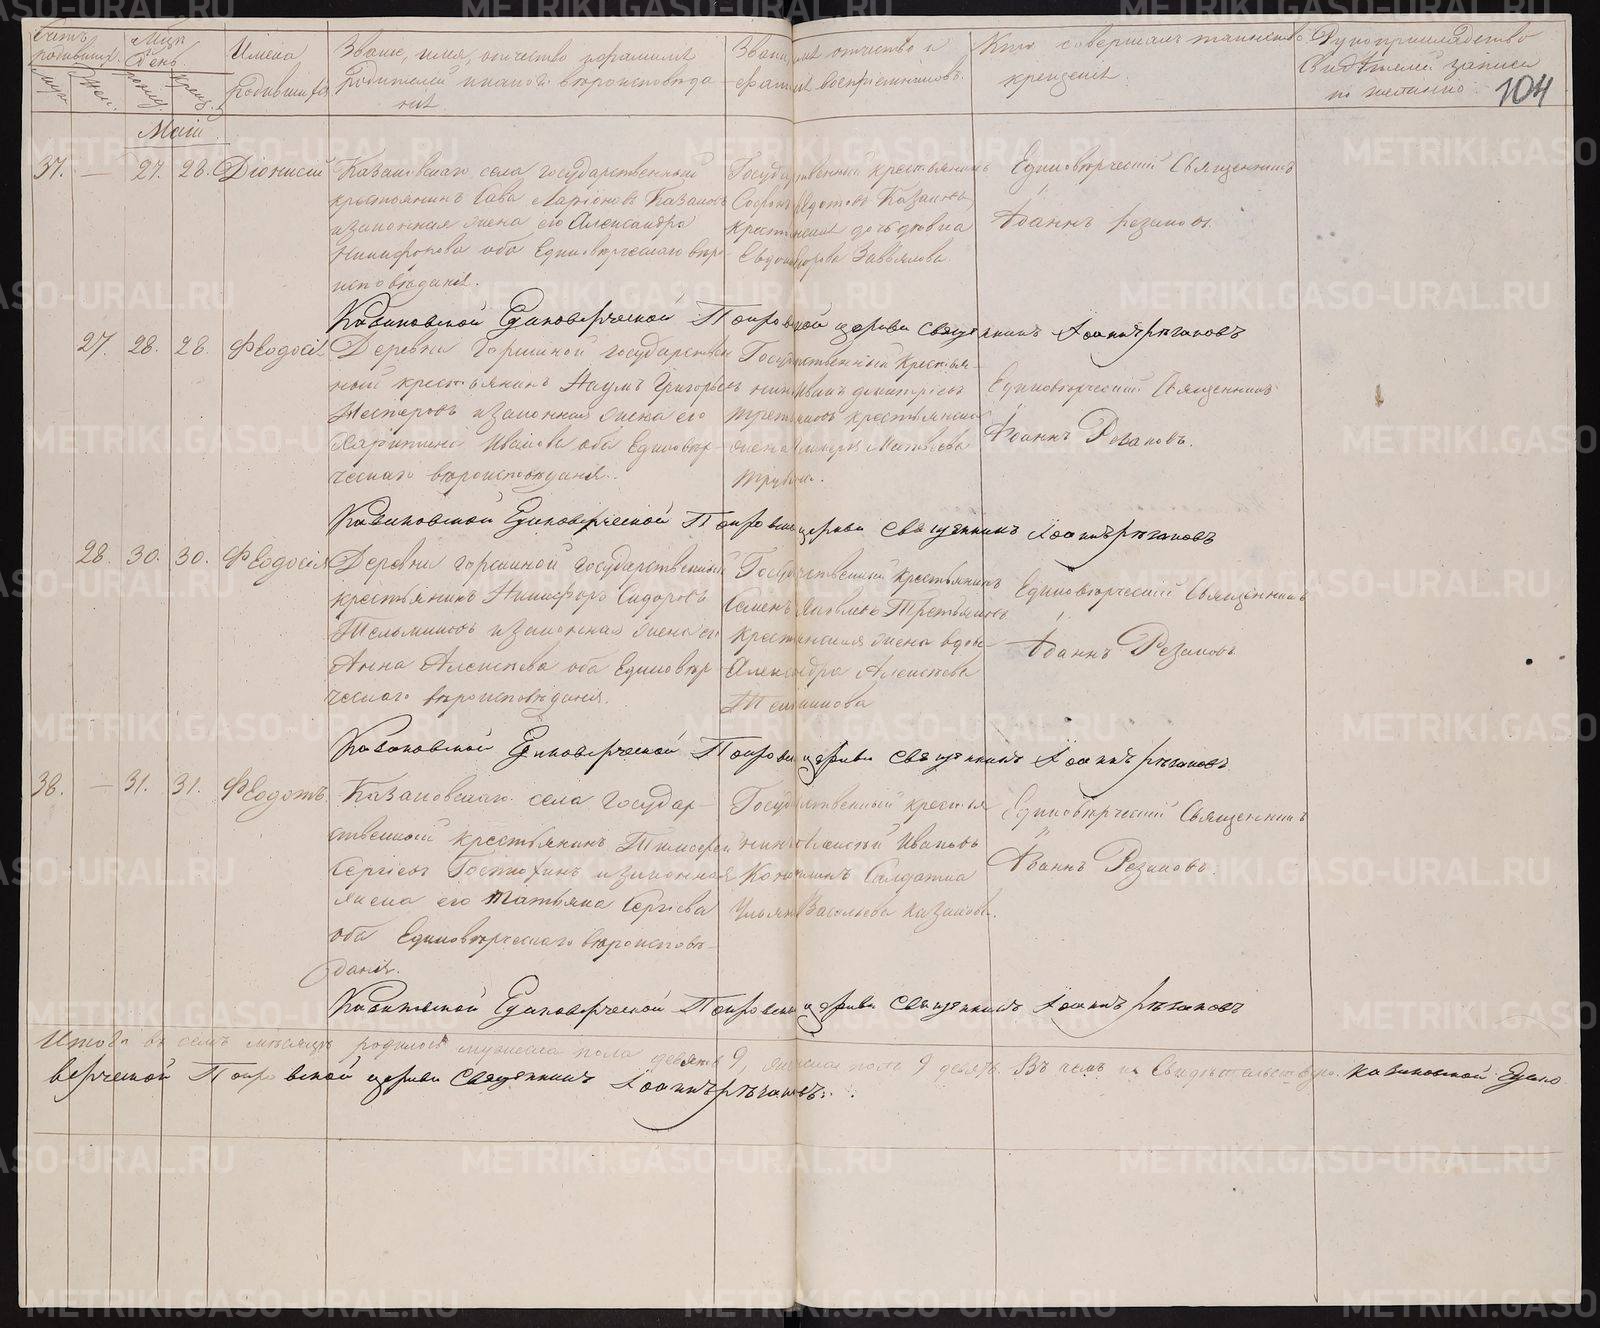 Счетъ родившихся.
Муж.
Жен.
Мѣсяцъ и день.
рожд.
крещ.
Имена
родившихся
Званіе, имя, отчество и фамилія
Родителей и какого вѣроисповѣда
нія.
Званіе, имя, отчество и
фамилія воспріемниковъ.
Кто совершалъ таинство
крещенія.
Рукоприкладство
Свидѣтелей записи
по желанію.
104
Май
37. — 27. 28. Діонисій
Казановскаго села государственный
крестьянинъ Сава Ларіоновъ Казановъ
и законная жена его Александра
Никифорова оба Единовѣрческаго вѣро
исповѣданія.
Государственный крестьянинъ
Софонъ Ѳедотовъ Казановъ
дочь дѣвка
Завьялова
Единовѣрческій Священникъ
Іоаннъ Резановъ.
Казановской Единоверческой Покровской церкви священникъ Іоаннъ Рѣзановъ
27. 28. 28. Ѳеодосія
Деревни государствен
ный крестьянинъ Наумъ Григорьевъ
Нестеровъ и законная жена его
Харитина Иванова оба Единовѣр-
ческаго вѣроисповѣданія.
Государственный крестья-
нинъ Иванъ Димитріевъ
крестьянская
жена Матвѣева
Единовѣрческій Священникъ
Іоаннъ Резановъ.
Казановской Единоверческой Покровской церкви священникъ Іоаннъ Рѣзановъ
28. 30. 30. Ѳеодосія
Деревни государственный
крестьянинъ Никифоръ Сидоровъ
и законная жена его
Анна Алексѣева оба Единовѣр
ческаго вѣроисповѣданія.
Государственный крестьянинъ
Семенъ Яковлевъ Третьяковъ
крестьянская жена вдова
Александра Алексѣева
Единовѣрческій Священникъ
Іоаннъ Резановъ
Казановской Единоверческой Покровской церкви священникъ Іоаннъ Рѣзановъ
38. — 31. 31. Ѳеодотъ
Казановскаго села государ-
ственный крестьянинъ Тимофей
Сергіевъ и законная
жена его Татьяна Сергіева
оба Единовѣрческаго вѣроисповѣ-
данія.
Государственный крестья
нинъ Алексѣй Ивановъ
Солдатка
Ульяна Васильева Казанова.
Единовѣрческій Священникъ
Іоаннъ Резановъ.
Казановской Единоверческой Покровской церкви священникъ Іоаннъ Рѣзановъ
Итого въ семъ мѣсяцѣ родилось мужеска пола девять 9, женска пола 9 девять. Въ чемъ и Свидѣтельствую. Казановской Едино
верческой Покровской церкви Священникъ Іоаннъ Рѣзановъ.
METRIKI.GASO-URAL.RU